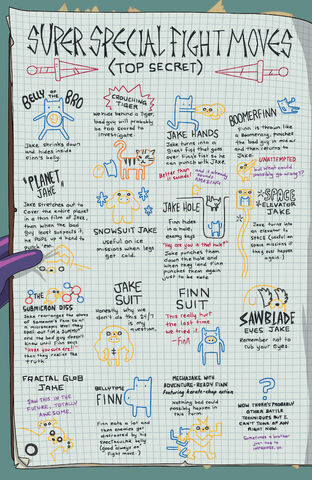 SUPER SPECIAL FIGHT MOVES
(TOP SECRET)
BELLY OF THE BRO
Jake shrinks down
and hides inside
Finn's belly.
CROUCHING
TIGER
We hide behind a Tiger,
bad guy will probably
be too scared to
investigate.
JAKE HANDS
Jake turns into a
Giant Fist that goes
over Finn's fist so he
can punch with JAKE.
Better than
it sounds!
and it already
sounds
AWESOME
BOOMERFINN
Finn is thrown like
a Boomerang, Punches
the bad guy in mid air
and then returns to
Jake.
UNATTEMPTED
but what could
possibly go wrong??
PLANET
JAKE
Jake Stretches out to
Cover the entire planet
in a thin film of Jake,
then when the bad
guy least suspects it,
he Pops up a hand to
SNOWSUIT JAKE
useful on ice
missions when legs
get cold.
JAKE HOLE
Finn hides
in a hole,
enemy says
"Hey are you in that hole?"
Jake punches them
down the hole and
when they land Finn
punches them again
just to be sure.
*SPACE
ELEVATOR
JAKE
Jake turns into
an elevator to
SPACE (useful on
Space missions if
they ever happen
again)
THE
SUBMICRON DISS
Jake rearranges the atoms
of someone's face so at
a microscopic level they
spell out "I'm a Dumbutt"
and the bad guy doesn't
know until Finn says
realize the
truth
JAKE
SUIT
Honestly why we
don't do this 24/7
is my
question.
FINN
SUIT
This really hurt
the last time
we tried it
-Finn
SAWBLADE
EYES JAKE
Remember not to
rub your eyes.
FRACTAL GLOB
JAKE
SAW THIS IN THE
FUTURE, TOTALLY
AWESOME
BELLYTIME
FINN
Finn eats a lot and
then enemies get
distracted by his
spectacular belly
(good "always on"
fight move.)
MECHAJAKE WITH
ADVENTURE-READY FINN
Featuring karate-chop action
Nothing bad could
possibly happen in
this form.
?
WOW THERE'S PROBABLY
OTHER BATTLE
TECHNIQUES BUT I
CAN'T THINK OF ANY
RIGHT NOW.
Sometimes a brother
just has to